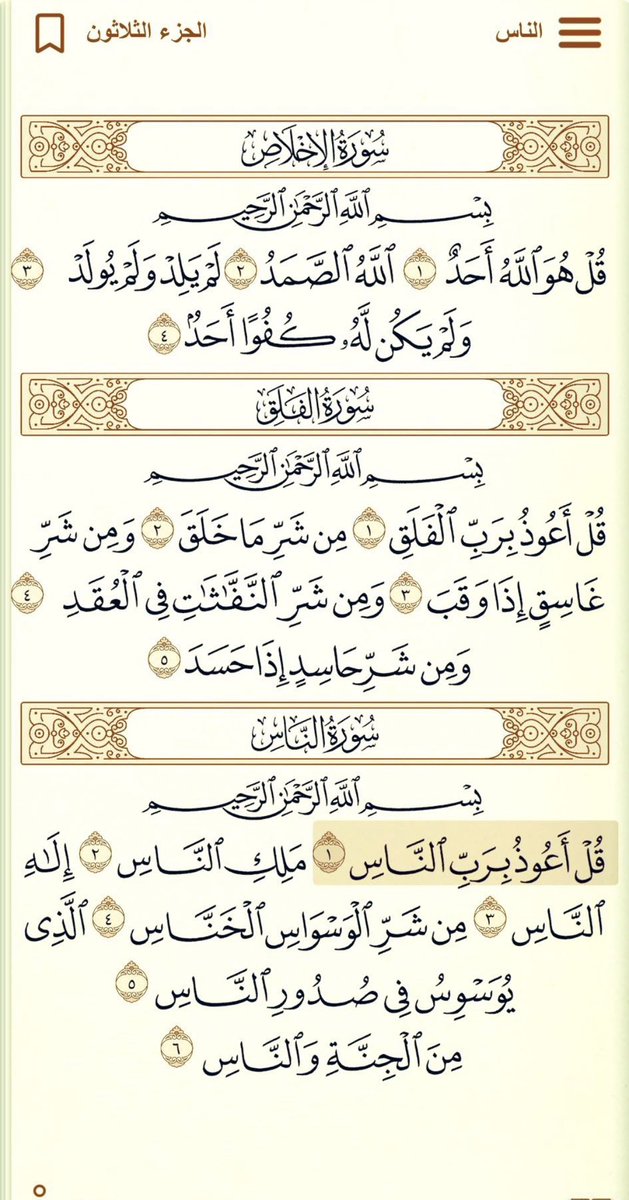 الناس
الجزء الثلاثون
سُورَةُ الإِخْلَاصِ
بِسْمِ ٱللَّهِ ٱلرَّحْمَٰنِ ٱلرَّحِيمِ
قُلْ هُوَ ٱللَّهُ أَحَدٌ ١ ٱللَّهُ ٱلصَّمَدُ ٢ لَمْ يَلِدْ وَلَمْ يُولَدْ ٣
وَلَمْ يَكُن لَّهُۥ كُفُوًا أَحَدٌۢ ٤
سُورَةُ الفَلَقِ
بِسْمِ ٱللَّهِ ٱلرَّحْمَٰنِ ٱلرَّحِيمِ
قُلْ أَعُوذُ بِرَبِّ ٱلْفَلَقِ ١ مِن شَرِّ مَا خَلَقَ ٢ وَمِن شَرِّ
غَاسِقٍ إِذَا وَقَبَ ٣ وَمِن شَرِّ ٱلنَّفَّٰثَٰتِ فِى ٱلْعُقَدِ ٤
وَمِن شَرِّ حَاسِدٍ إِذَا حَسَدَ ٥
سُورَةُ النَّاسِ
بِسْمِ ٱللَّهِ ٱلرَّحْمَٰنِ ٱلرَّحِيمِ
قُلْ أَعُوذُ بِرَبِّ ٱلنَّاسِ ١ مَلِكِ ٱلنَّاسِ ٢ إِلَٰهِ
ٱلنَّاسِ ٣ مِن شَرِّ ٱلْوَسْوَاسِ ٱلْخَنَّاسِ ٤ ٱلَّذِى
يُوَسْوِسُ فِى صُدُورِ ٱلنَّاسِ ٥
مِنَ ٱلْجِنَّةِ وَٱلنَّاسِ ٦